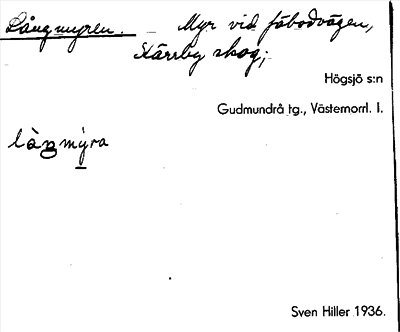 Långmyren. – Myr vid fäbodvägen,
Kärrby skog;
Högsjö s:n
Gudmundrå tg., Västernorrl. l.
làŋmy̆ra
Sven Hiller 1936.